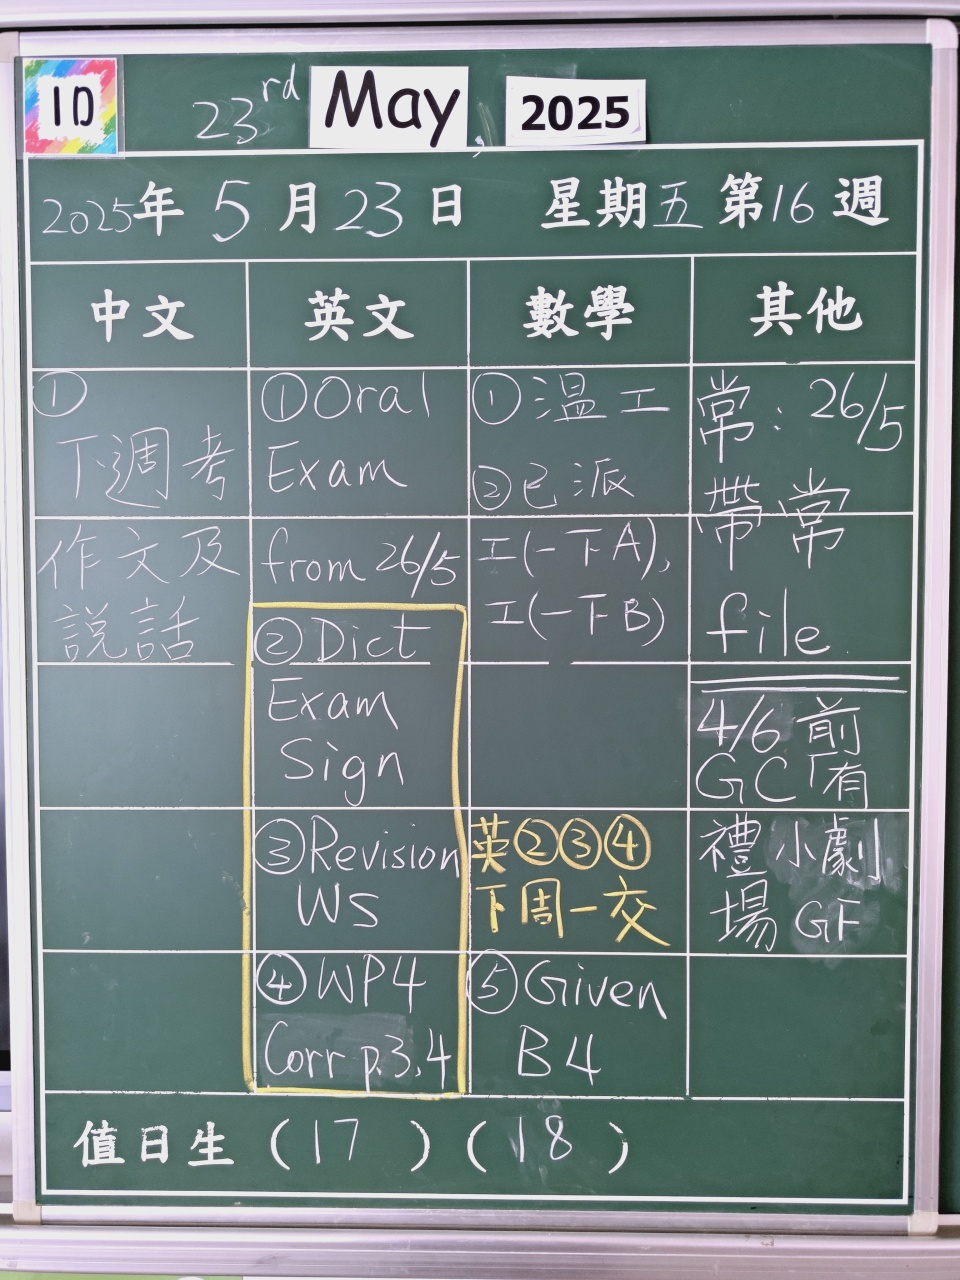 1D
23rd May, 2025
2025年5月23日 星期五第16週
中文
英文
數學
其他
①
下週考
作文及
説話
①Oral
Exam
from 26/5
②Dict
Exam
Sign
③Revision
WS
④WP4
Corr p.3,4
①温工
②已派
工(一下A),
工(一下B)
英②③④
下周一交
⑤Given
B4
常：26/5
帶常
file
4/6前
GC「有
禮小劇
場GF
值日生(17)(18)